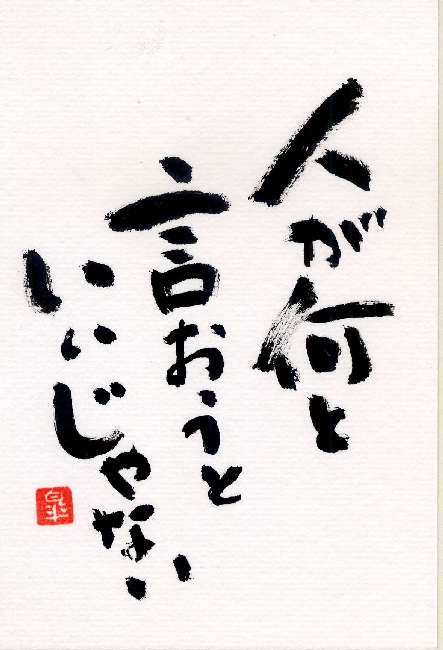 人が何と
言おうと
いいじゃない